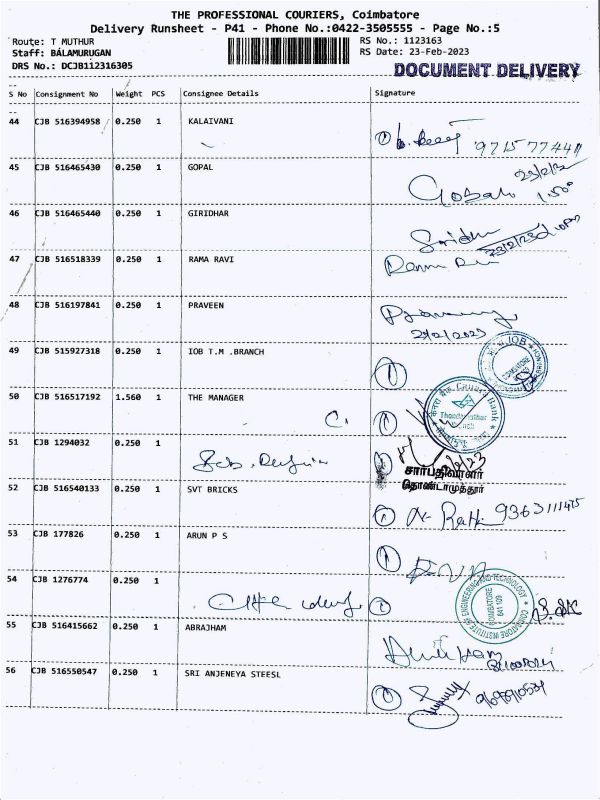 THE PROFESSIONAL COURIERS, Coimbatore
Delivery Runsheet - P41 - Phone No.:0422-3505555 - Page No.:5
Route: T MUTHUR
RS No.: 1123163
Staff: BALAMURUGAN
RS Date: 23-Feb-2023
DRS No.: DCJB112316305
DOCUMENT DELIVERY
S No Consignment No Weight PCS Consignee Details Signature
44 CJB 516394958 0.250 1 KALAIVANI
45 CJB 516465430 0.250 1 GOPAL
46 CJB 516465440 0.250 1 GIRIDHAR
47 CJB 516518339 0.250 1 RAMA RAVI
48 CJB 516197841 0.250 1 PRAVEEN
49 CJB 515927318 0.250 1 IOB T.M .BRANCH
50 CJB 516517192 1.560 1 THE MANAGER
51 CJB 1294032 0.250 1
சார்பதிவாளர்
தொண்டாமுத்தூர்
52 CJB 516540133 0.250 1 SVT BRICKS
53 CJB 177826 0.250 1 ARUN P S
54 CJB 1276774 0.250 1
COIMBATORE INSTITUTE OF ENGINEERING AND TECHNOLOGY
COIMBATORE
641 109
55 CJB 516415662 0.250 1 ABRAJHAM
56 CJB 516550547 0.250 1 SRI ANJENEYA STEESL